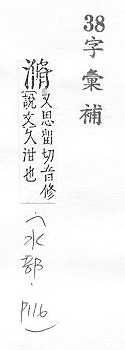 38字彙補
滫
又思留切音修
[說文]久泔也
(水部. P116)